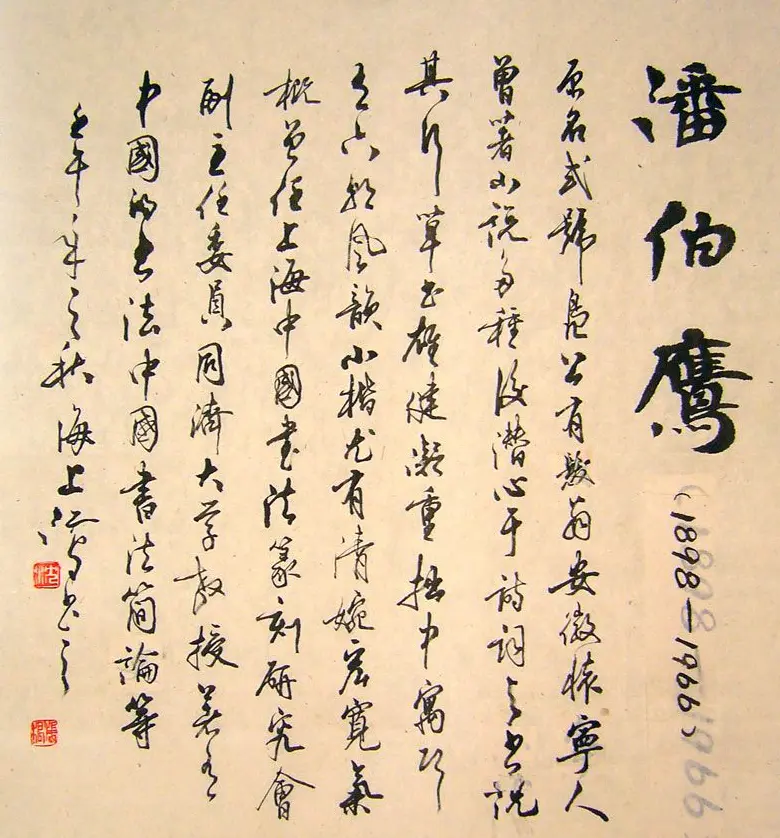 潘伯鷹
(1898—1966)
原名式號鳧公有髮翁安徽懷寧人
曾著小說多種後潛心于詩詞與書說
其行草書雄健凝重拙中寓巧
有六朝風韻小楷尤有清婉寬氣
概曾任上海中國書法篆刻研究會
副主任委員同濟大学教授著有
中國的書法中國書法簡論等
壬午年之秋海上書之